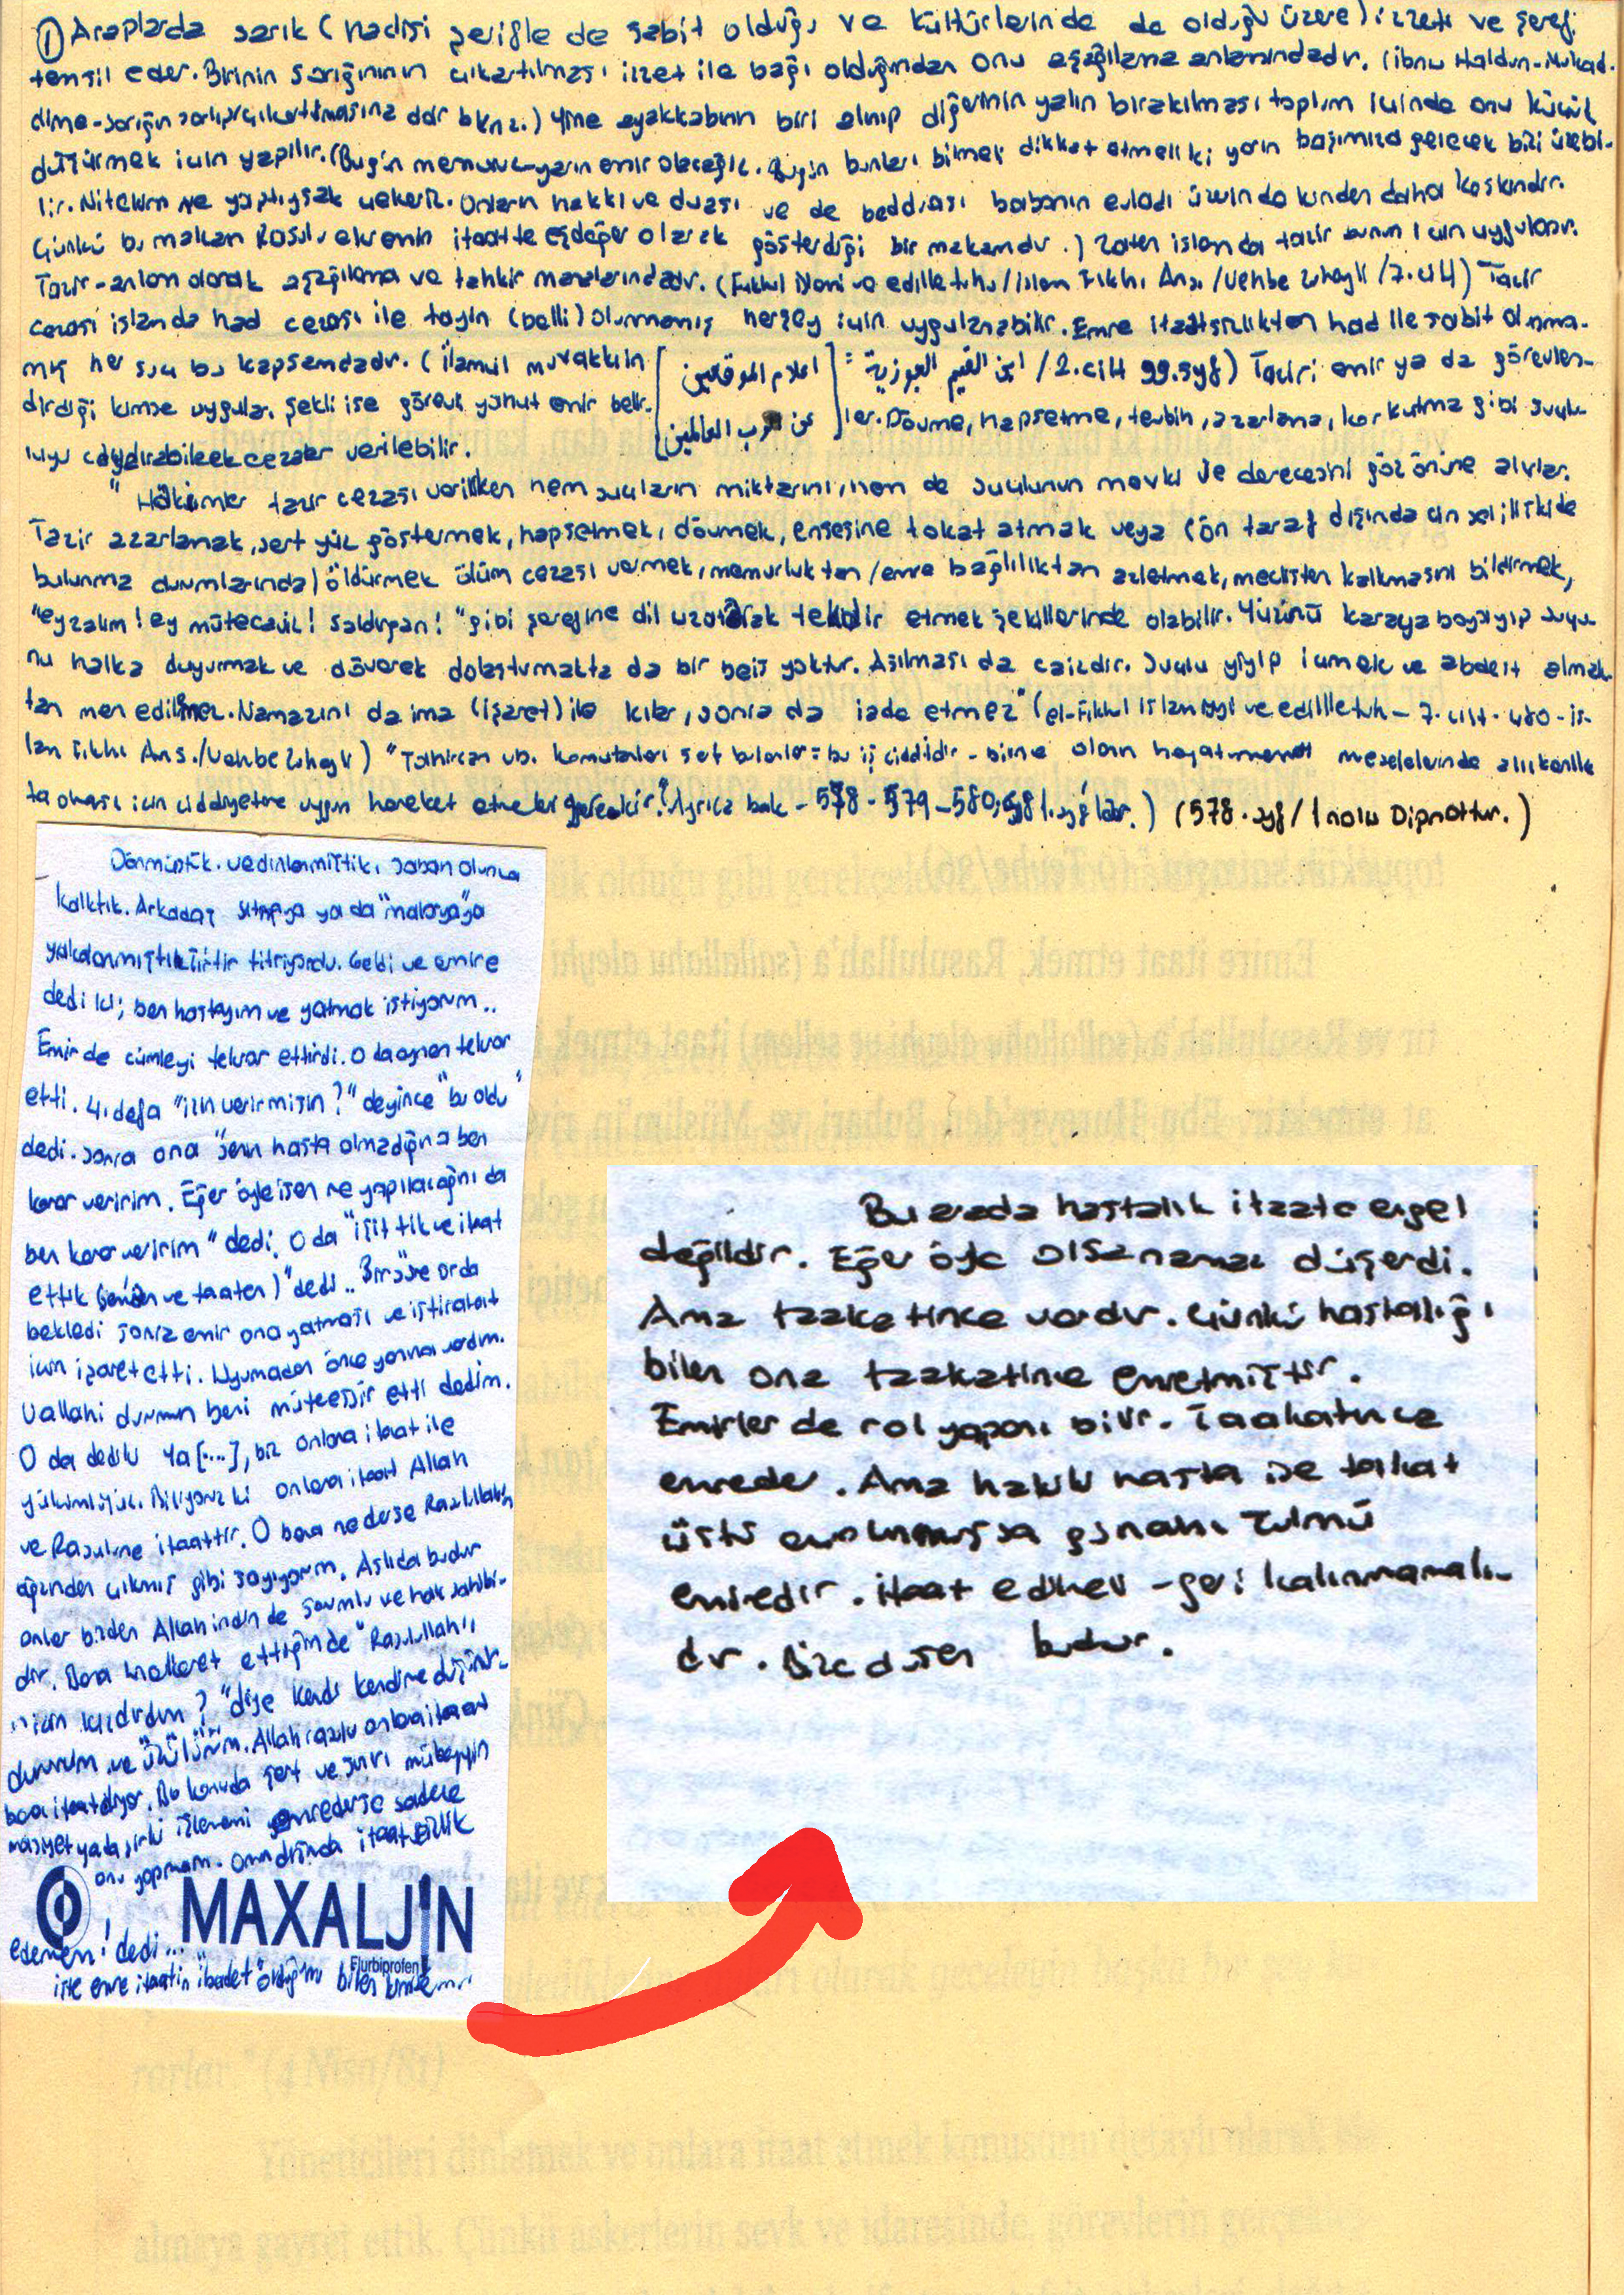 ① Araplarda sarık (hadisi şerifle de sabit olduğu ve kültürlerinde de olduğu üzere) izzeti ve şerefi
temsil eder. Birinin sarığının çıkartılması izzet ile bağı olduğundan onu aşağılama anlamındadır. (ibnu Haldun-Mukad-
dime-sarığın çıkartılmasına dair bknz.) Yine ayakkabının biri alınıp diğerinin yalın bırakılması toplum içinde onu küçük
düşürmek için yapılır. (Bugün memuruz-yarın emir olacağız. Bugün bunları bilmek dikkat etmeli ki yarın başımıza gelecek bizi üzebi-
lir. Nitekim ne yaptıysak çekeriz. Onların hakkı ve duası ve de bedduası babanın evladı üzerinde daha keskindir.
Çünkü bu makam Rasulu ekremin itaatte eşdeğer olarak gösterdiği bir makamdır.) Zaten islamda tazir bunun için uygulanır.
Tazir-anlam olarak aşağılama ve tahkir manalarındadır. (Fıkhul İslami ve edilletuhu/İslam Fıkhı Ans./Vehbe Zuhayli/7.cilt) Tazir
cezası islamda had cezası ile tayin (belli) olunmamış herşey için uygulanabilir. Emre itaatsizlikten had ile sabit olunma-
mış her suç bu kapsamdadır. (İlamul muvakkiin [اعلام الموقعين = ابن القيم الجوزية / 2.cilt 99.syf) Taziri emir ya da görevlen-
dirdiği kimse uygular. Şekli ise görevli yahut emir belir- عن رب العالمين] ler. Dövme, hapsetme, tevbih, azarlama, korkutma gibi suçlu-
luğu caydırabilecek cezalar verilebilir.
"Hakimler tazir cezası verirken hem suçların miktarını, hem de suçlunun mevki ve derecesini göz önüne alırlar.
Tazir azarlamak, sert yüz göstermek, hapsetmek, dövmek, ensesine tokat atmak veya (ön taraf dışında cinsel ilişkide
bulunma durumlarında) öldürmek ölüm cezası vermek, memurluktan/emre bağlılıktan azletmek, meclisten kalkmasını bildirmek,
"ey zalim! ey mütecaviz! saldırgan!" gibi şerefine dil uzatarak tekdir etmek şekillerinde olabilir. Yüzünü karaya boyayıp suçu-
nu halka duyurmak ve döverek dolaştırmakta da bir beis yoktur. Asılması da caizdir. Suçlu yiyip içmek ve abdest almak-
tan men edilmez. Namazını da ima (işaret) ile kılar, sonra da iade etmez" (el-Fıkhul islamiyyi ve edilletuh-7.cilt-480-İs-
lam Fıkhı Ans./Vehbe Zuhayli) "Talimcan vb. komutanları sert bulanlar= bu iş ciddidir - olan hayat meselelerinde
ta olması için ciddiyetine uygun hareket etmeleri gerekir. Ayrıca bak - 578 - 579 - 580. syf lar.) (578. syf / 1 nolu Dipnottur.)
Dönmüştük. ve dinlenmiştik, sabah olunca
kalktık. Arkadaş sıtmaya ya da "malarya"ya
yakalanmıştı tir tir titriyordu. Geldi ve emire
dedi ki; ben hastayım ve yatmak istiyorum..
Emir de cümleyi tekrar ettirdi. O da aynen tekrar
etti. 4. defa "izin verir misin?" deyince "bu oldu"
dedi. sonra ona "senin hasta olmadığına ben
karar veririm. Eğer öyle isen ne yapılacağını da
ben karar veririm" dedi. O da "işittik ve itaat
ettik (sem'an ve taaten)" dedi.. Bir süre orda
bekledi sonra emir ona yatması ve istirahat
için işaret etti. Uyumadan önce yanına vardım.
Vallahi durumun beni müteessir etti dedim.
O da dedi ki Ya [....], biz onlara itaat ile
yükümlüyüz. Biliyoruz ki onlara itaat Allah
ve Rasulüne itaattir. O bana ne derse Rasulullahın
ağzından çıkmış gibi sayıyorum. Aslıda budur
onlar bizden Allah indinde sorumlu ve hak sahibi-
dir. Bana hakaret ettiğinde "Rasulullah'ı
niçin kızdırdım?" diye kendi kendime düşünü-
rüm ve üzülürüm. Allah razı onlara itaat
bana itaat diyor. Bu konuda şart ve sınırı mübeyyin
masiyet ya da şirki işlememi emrederse sadece
onu yapmam. onun dışında itaatsizlik
MAXALJIN
Flurbiprofen
edemem! dedi...
işte emre itaatin "ibadet" olduğunu bilen
Bu arada hastalık itaate engel
değildir. Eğer öyle olsa namaz düşerdi.
Ama taakatince vardır. Çünkü hastalığı
bilen ona taakatince emretmiştir.
Emirler de rol yapanı bilir. Taakatınca
emreder. Ama hakiki hasta ise takat
üstü emrolunmuşsa günahı zulmü
emiredir. itaat edilmeli - geri kalınmamalı-
dır. Bize düşen budur.